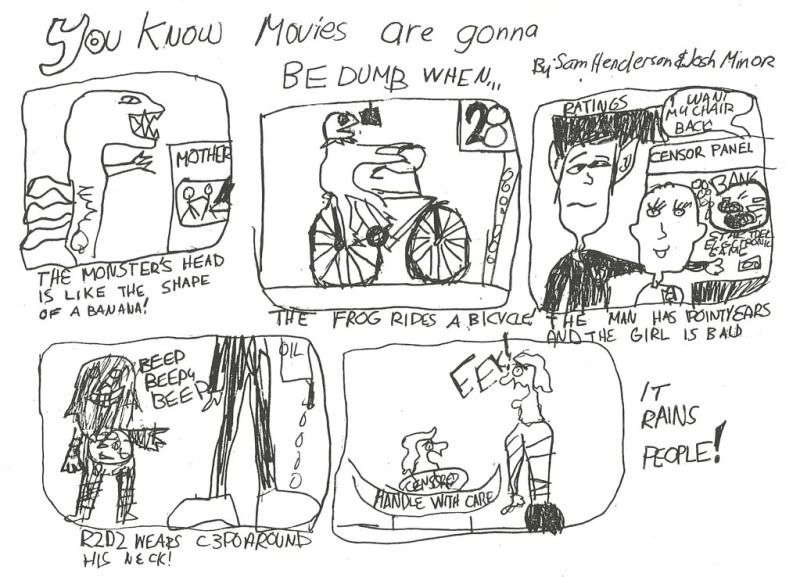 You Know Movies are gonna
BE DUMB WHEN...
By Sam Henderson & Josh Minor
MOTHER
THE MONSTER'S HEAD
IS LIKE THE SHAPE
OF A BANANA!
28
THE FROG RIDES A BICYCLE!
RATINGS
I WANT
MY CHAIR
BACK
CENSOR PANEL
BANK
STAR TREK
ELECTRONIC
GAME
THE MAN HAS POINTY EARS
AND THE GIRL IS BALD
BEEP
BEEPY
BEEP
OIL
R2D2 WEARS C3PO AROUND
HIS NECK!
EEK!
CENSORED
HANDLE WITH CARE
IT
RAINS
PEOPLE!